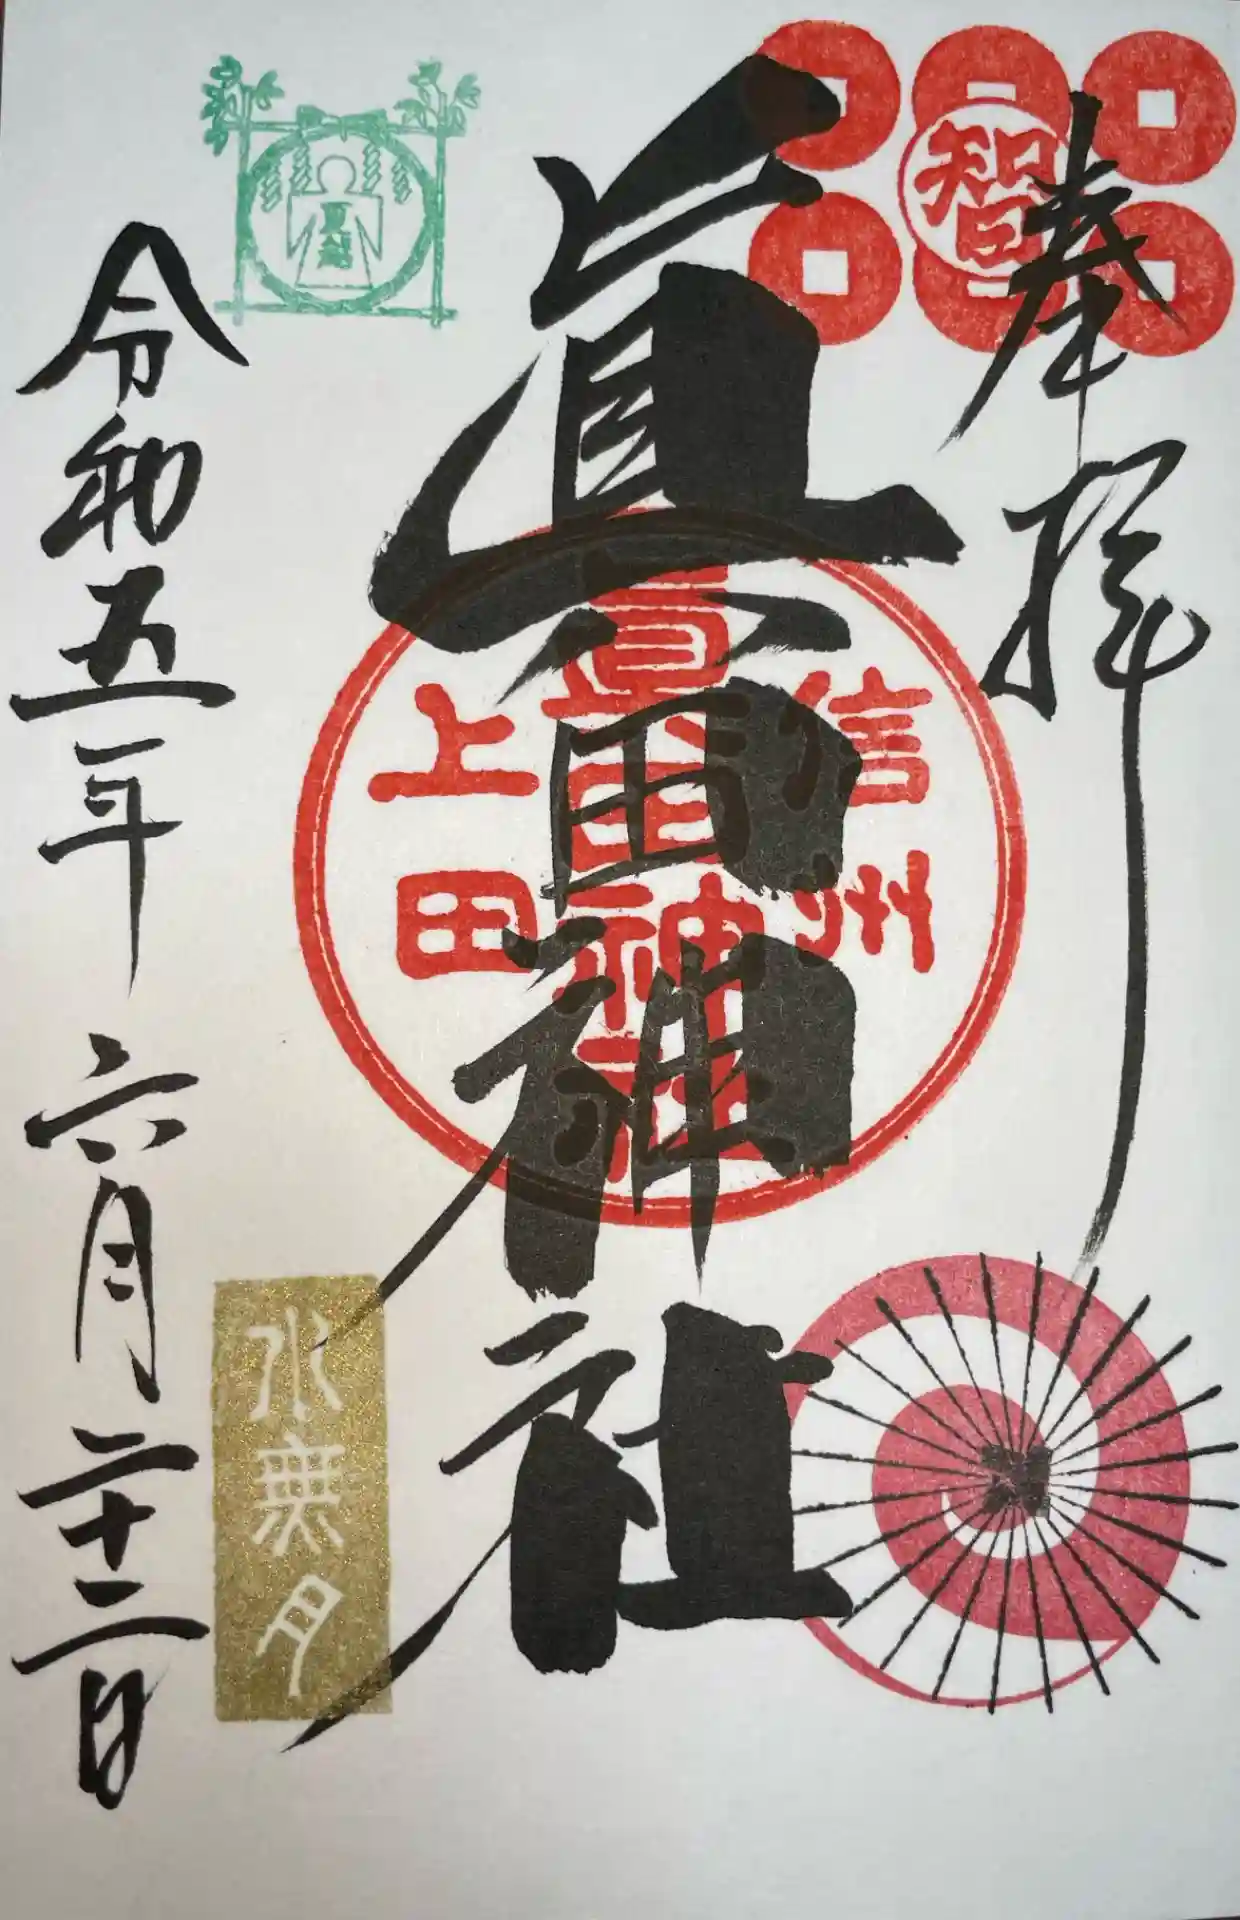 奉拝
智
眞田神社
信州
眞田神社
上田
夏越
水無月
令和五年六月二十二日